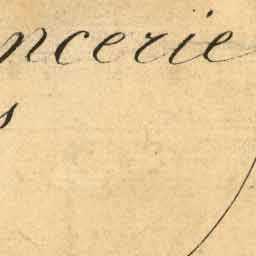 ncerie
s